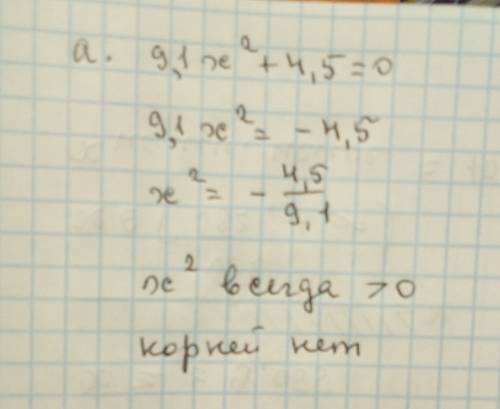 а. 9,1 x² + 4,5 = 0
9,1 x² = - 4,5
x² = - 4,5/9,1
x² всегда > 0
корней нет